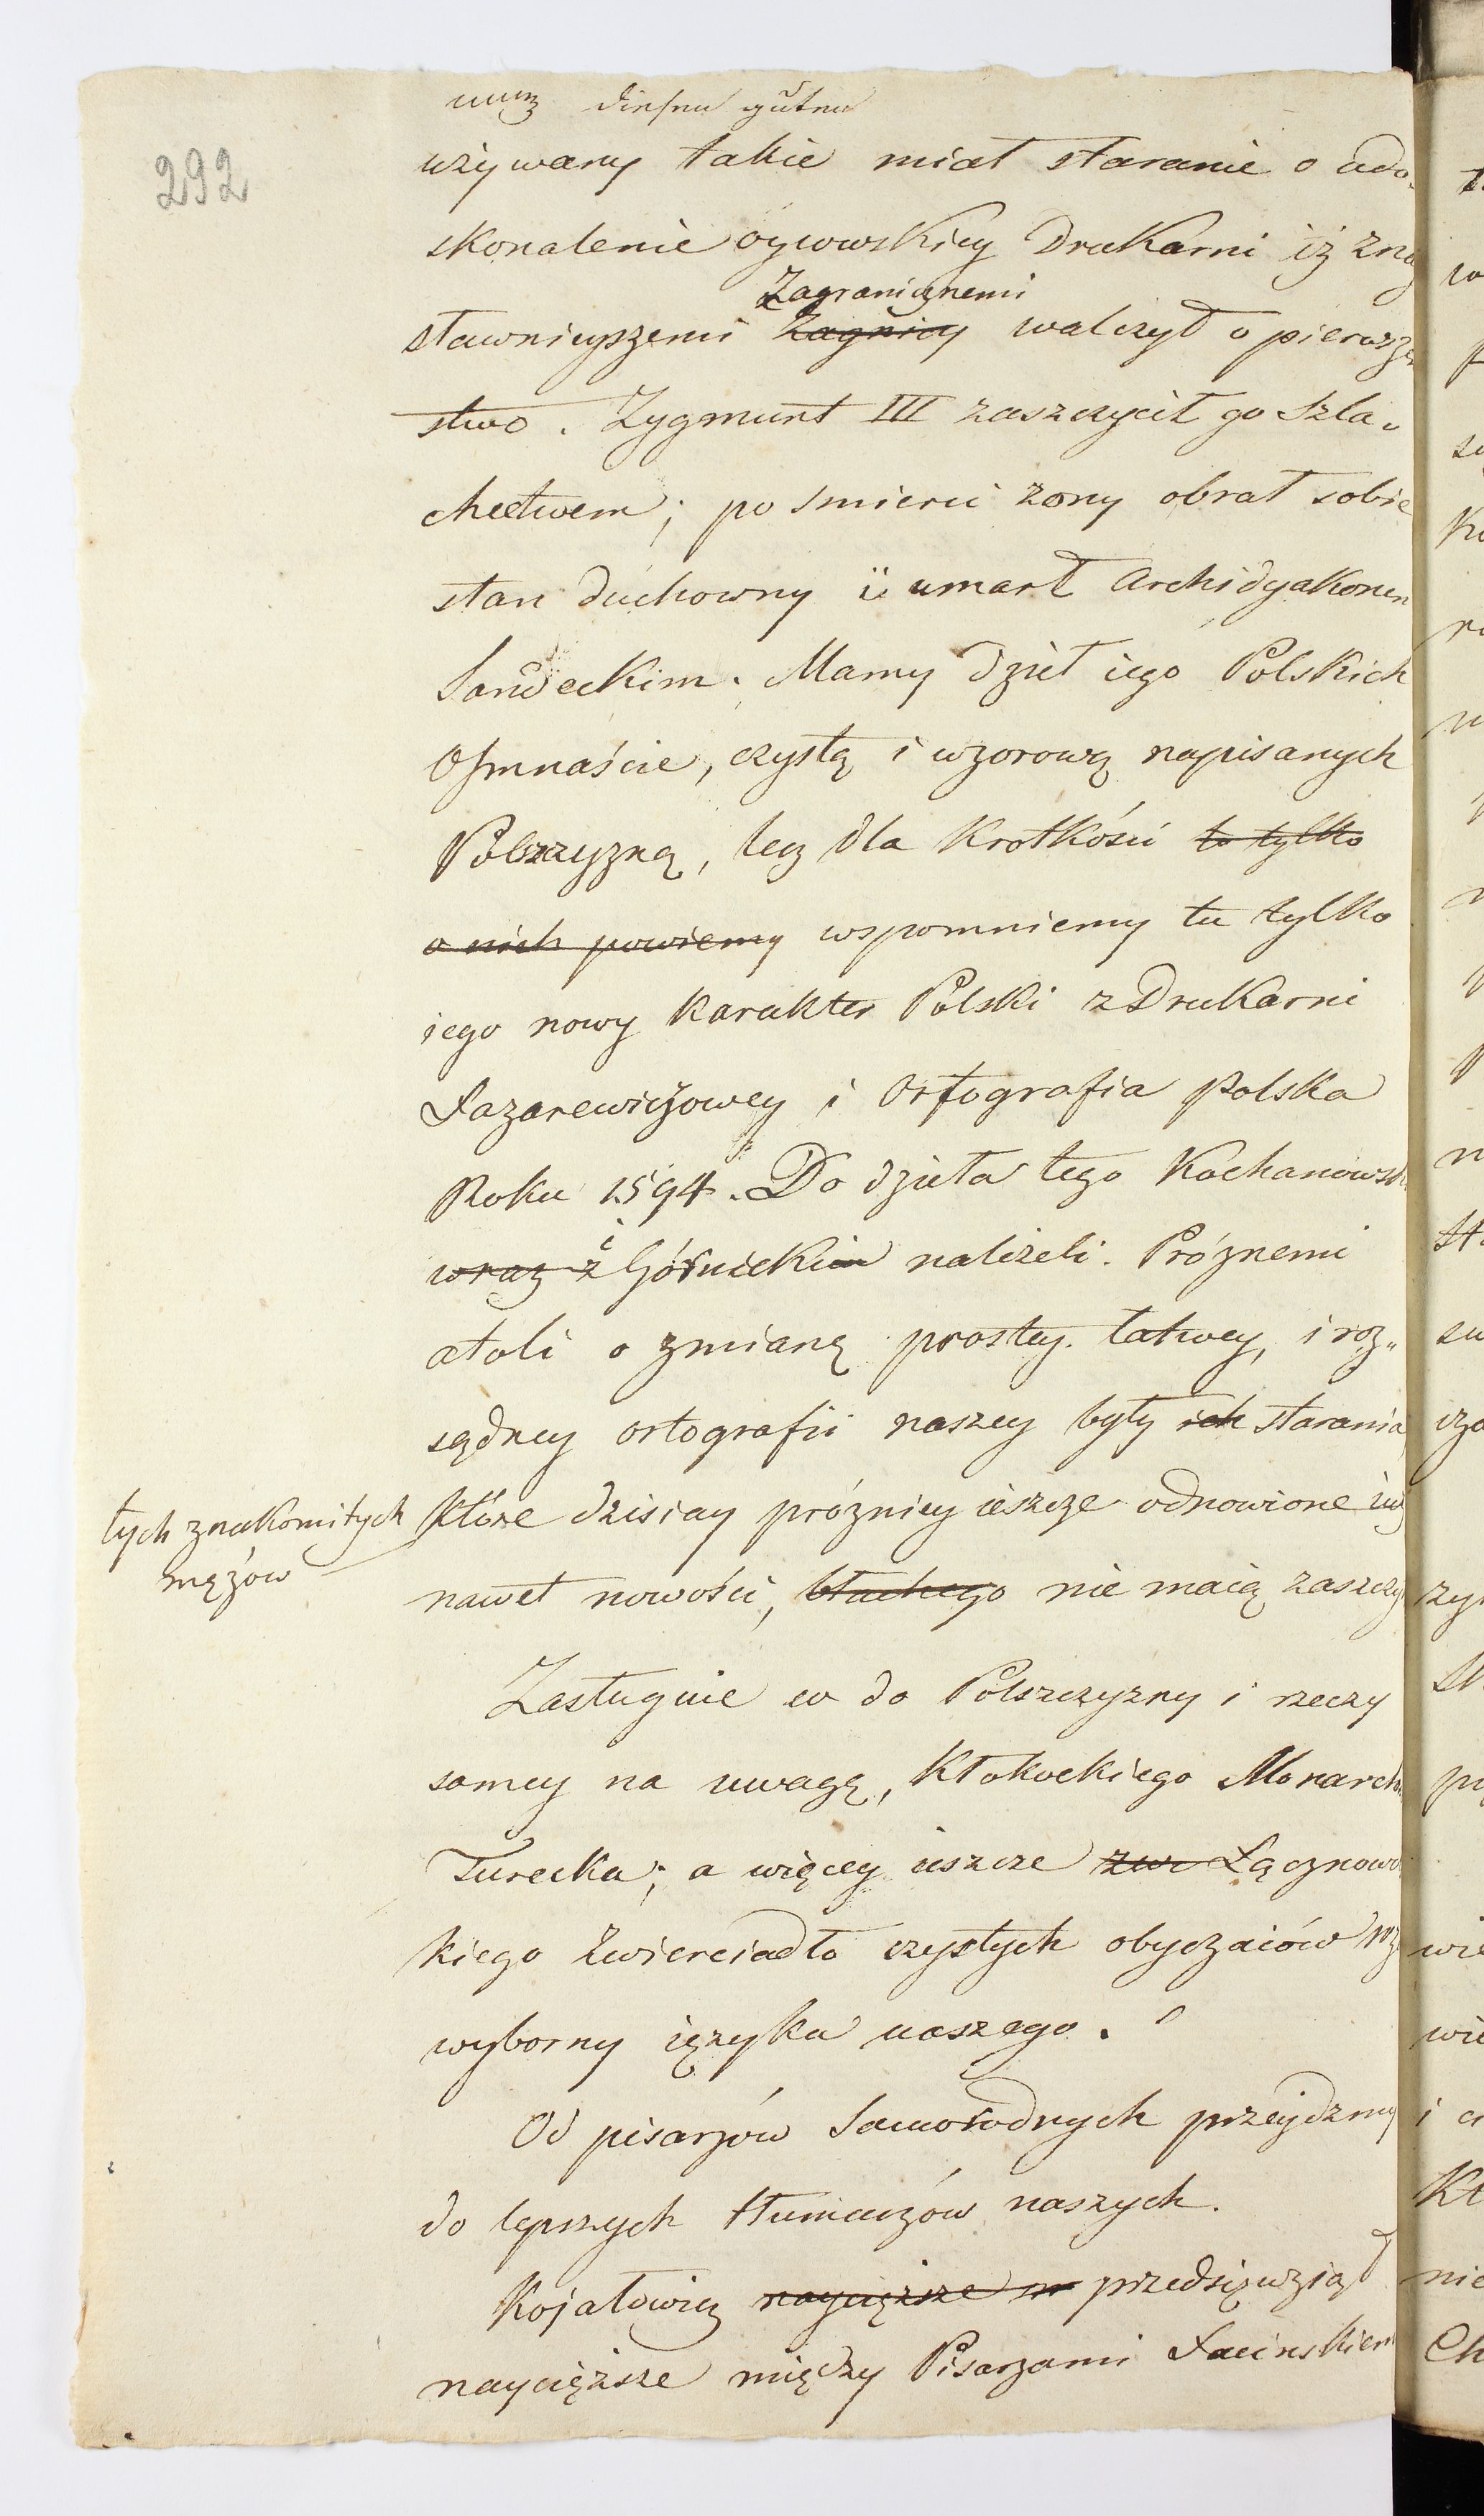 292
diesen guten
używany takie miał staranie o udo„
skonalenie oycowskiey Drukarni iż z nay
sławnieyszemi Zagnicy Zagranicznemi walczył o pierwszeń
stwo. Zygmunt III zaszczycił go Szla„
chectwem; po smierci żony obrał sobie
stan duchowny ii umarł Archidyakonem
Sandeckim. Mamy dzieł iego Polskich
Ośmnaście, czystą i wzorową napisanych
Polszczyzną, lecz dla krotkości to tylko
o nich powiemy wspomniemy tu tylko
iego nowy karakter Polski z Drukarni
Łazarewiczowey i Ortografia Polska
Roku 1594. Do dzieła tego Kochanowski
wraz z i Górnickim należeli. Próżnemi
atoli o zmianę prostey. łatwey, i roz„
sądney ortografii naszey były ich starania
tych znakomitych
mężów
które dzisiay próżniey ieszcze odnowione iuż
nawet nowości, błachego nie maią zaszczy
Zasługuie co do Polszczyzny i rzeczy
samey na uwagę, Kłokockiego Monarchia
Turecka; a więcey ieszcze zwi Łącznows
kiego Zwierciadło czystych obyczaiów wz
wyborny ięzyka naszego.
Od pisarzów Samorodnych przeydzmy
do lepszych tłumaczów naszych.
Kojałowicz naycięższe m przedsięwziął
naycięższe między Pisarzami Łacinskiem